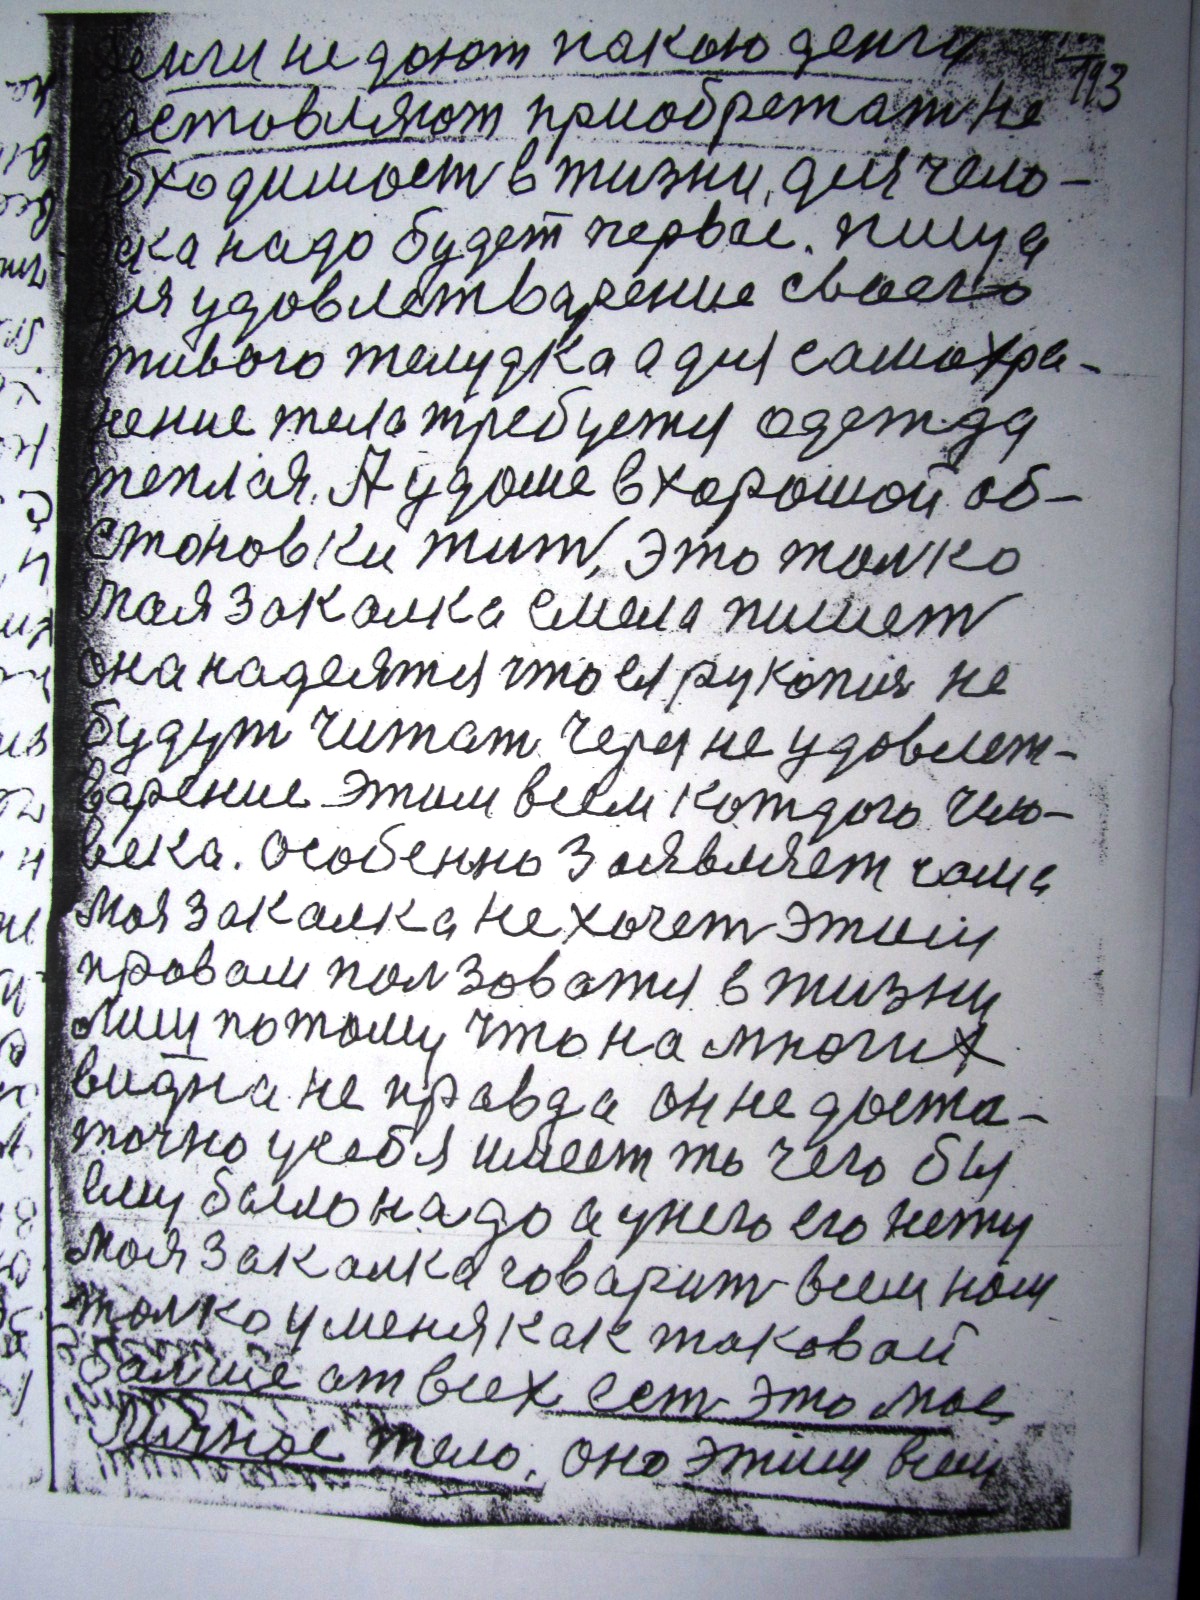 193
земли не дают пакою денги
заставляют приобретат не
обходимост в жизни, для чело-
века надо будет первое. пища
для удовлетварение своего
живого желудка а для самохра-
нение тела требуется одежда
теплая. А у доме в хорошой об-
становки жит, это толко
моя закалка смела пишет
она надеятся что ея рукопия не
будут читат через не удовлет-
варение этим всем кождого чело-
века. Особенно заявляет сама
моя закалка не хочет этим
правам ползоватя в жизни
лиш потому что на многих
видна не правда он не доста-
точно у себя имеет то чего бы
ему было надо а у него его нету
моя закалка говарит всем нам
толко у меня как таковай
балше от всех ест это мое
Личное тело. оно этим всем